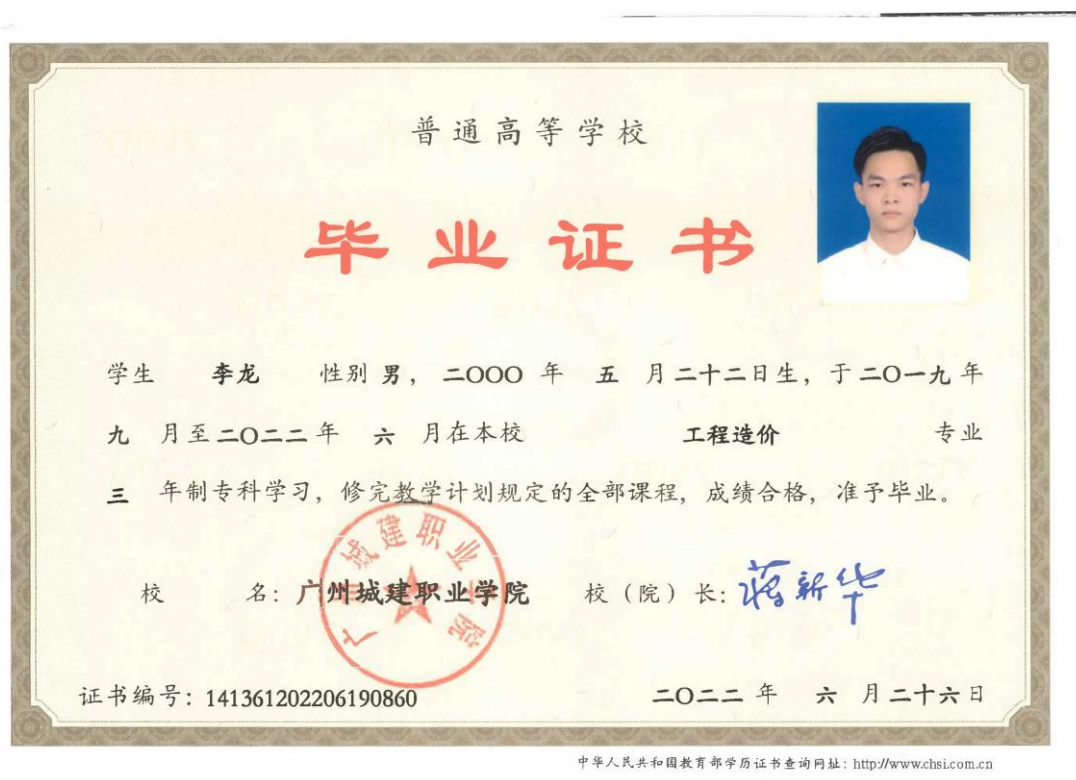 普通高等学校
毕业证书
学生 李龙 性别 男，二〇〇〇 年 五 月 二十二日生，于二〇一九 年
九 月至 二〇二二 年 六 月在本校 工程造价 专业
三 年制专科学习，修完教学计划规定的全部课程，成绩合格，准予毕业。
广州城建职业学院
校 名：广州城建职业学院 校（院）长：蒋新华
证书编号：141361202206190860 二〇二二 年 六 月 二十六日
中华人民共和国教育部学历证书查询网址：http://www.chsi.com.cn